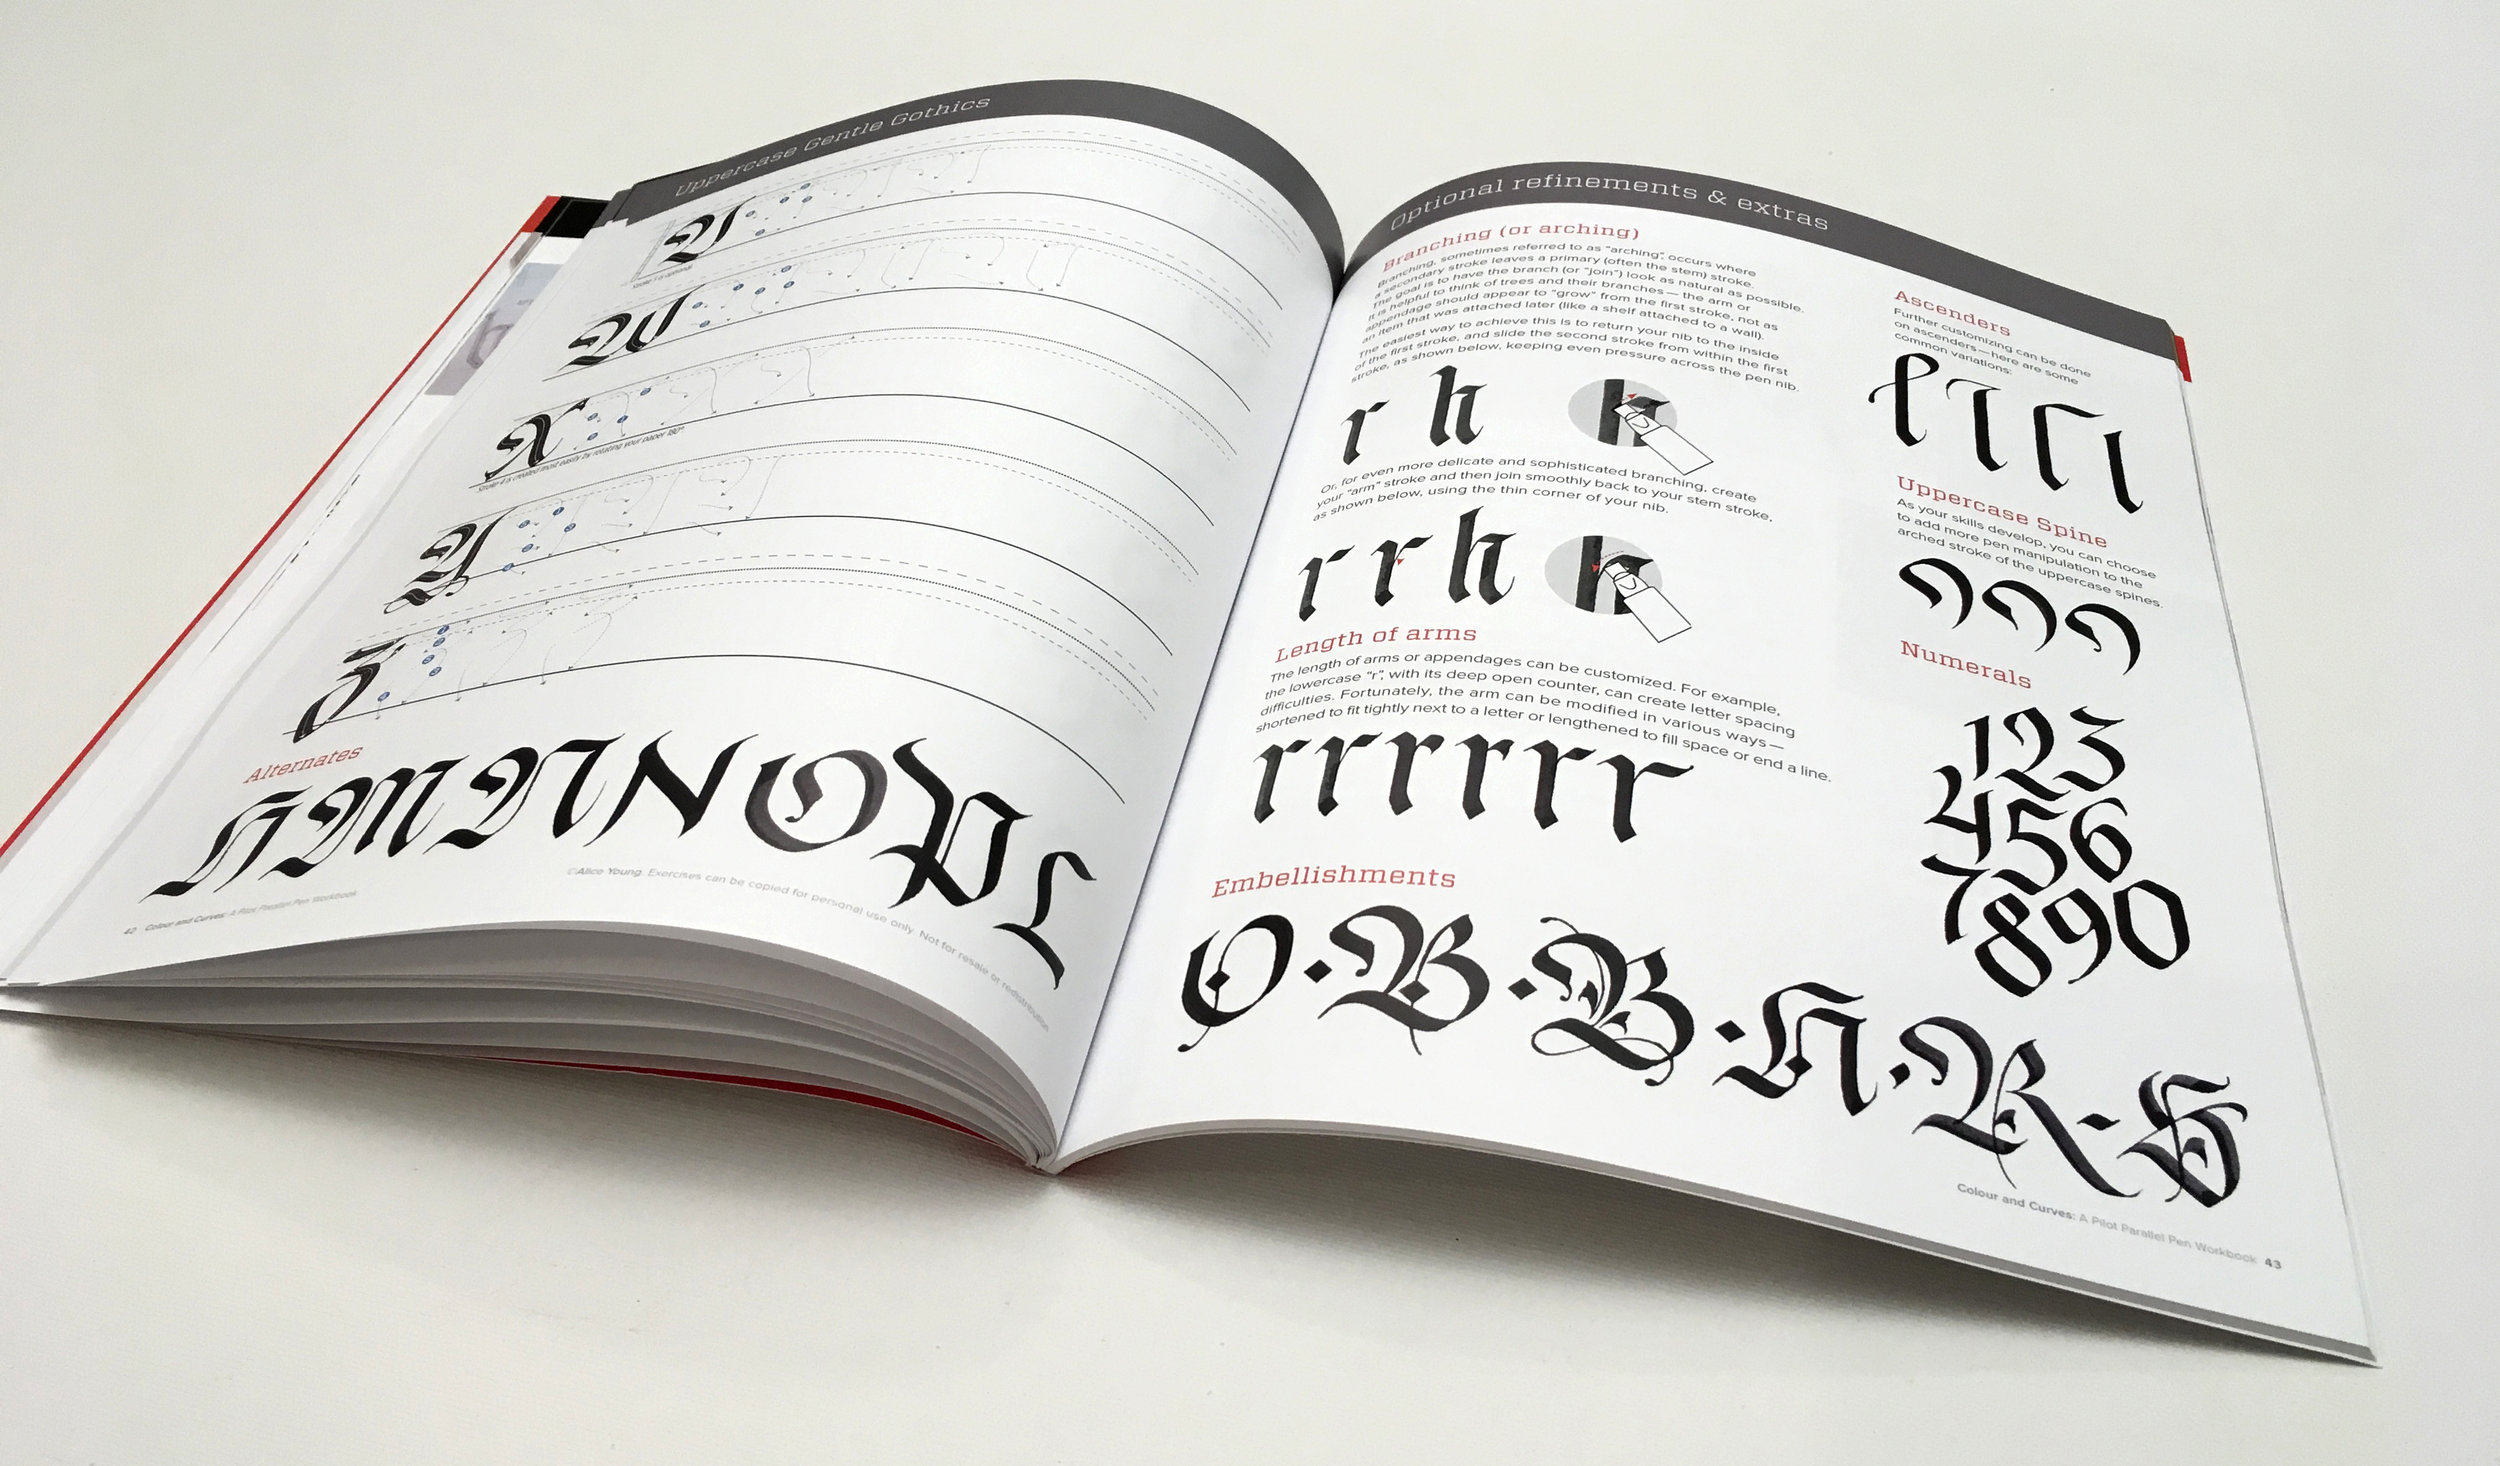 Uppercase Gentle Gothics
Stroke 4 is created most easily by rotating your paper 180°
Alternates
H M N N O P L
©Alice Young. Exercises can be copied for personal use only. Not for resale or redistribution
42 Colour and Curves: A Pilot Parallel Pen Workbook
Optional refinements & extras
Branching (or arching)
Branching, sometimes referred to as "arching", occurs where
a secondary stroke leaves a primary (often the stem) stroke.
The goal is to have the branch (or "join") look as natural as possible.
It is helpful to think of trees and their branches—the arm or
appendage should appear to "grow" from the first stroke, not as
an item that was attached later (like a shelf attached to a wall).
The easiest way to achieve this is to return your nib to the inside
of the first stroke, and slide the second stroke from within the first
stroke, as shown below, keeping even pressure across the pen nib.
r h h
Or, for even more delicate and sophisticated branching, create
your "arm" stroke and then join smoothly back to your stem stroke,
as shown below, using the thin corner of your nib.
r r h h
Length of arms
The length of arms or appendages can be customized. For example,
the lowercase "r", with its deep open counter, can create letter spacing
difficulties. Fortunately, the arm can be modified in various ways—
shortened to fit tightly next to a letter or lengthened to fill space or end a line.
r r r r r r
Embellishments
O · B · B · H · R · S
Ascenders
Further customizing can be done
on ascenders—here are some
common variations:
l l l l
Uppercase Spine
As your skills develop, you can choose
to add more pen manipulation to the
arched stroke of the uppercase spines.
Numerals
123
456
7890
Colour and Curves: A Pilot Parallel Pen Workbook 43